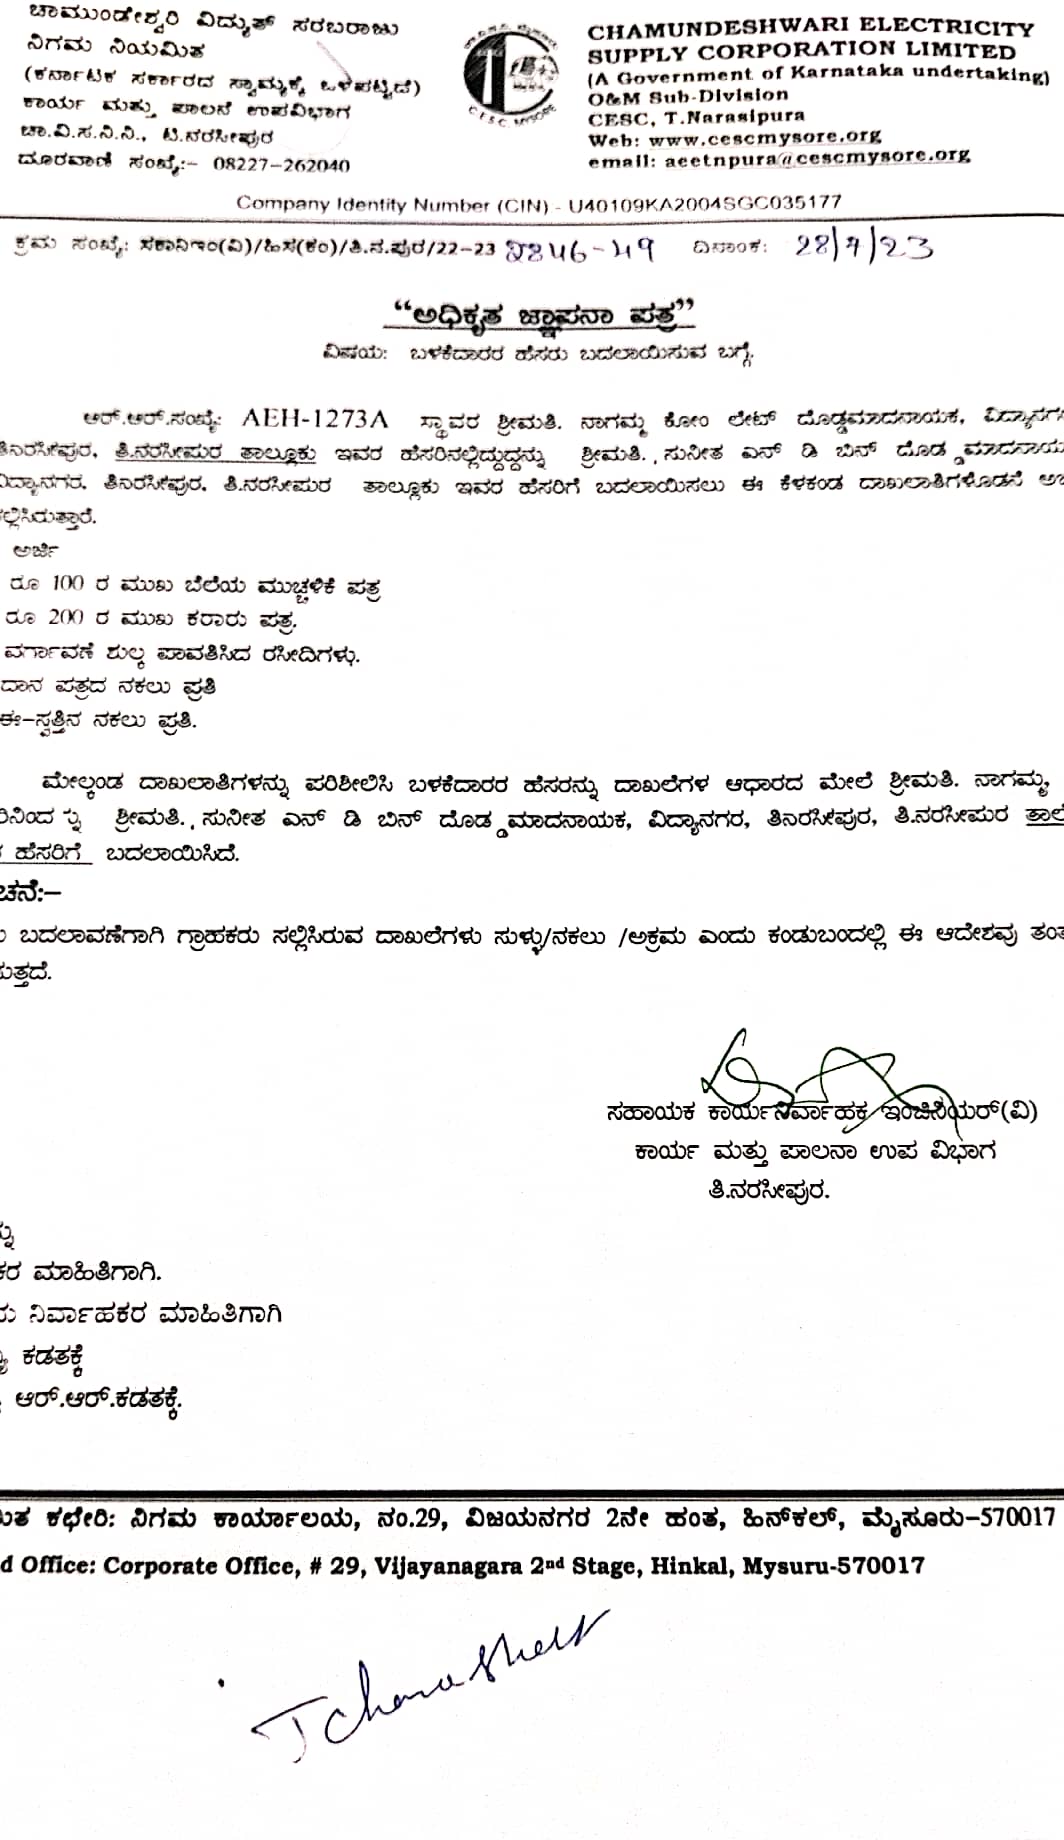 ಚಾಮುಂಡೇಶ್ವರಿ ವಿದ್ಯುತ್ ಸರಬರಾಜು
ನಿಗಮ ನಿಯಮಿತ
(ಕರ್ನಾಟಕ ಸರ್ಕಾರದ ಸ್ವಾಮ್ಯಕ್ಕೆ ಒಳಪಟ್ಟಿದೆ)
ಕಾರ್ಯ ಮತ್ತು ಪಾಲನೆ ಉಪವಿಭಾಗ
ಚಾ.ವಿ.ಸ.ನಿ.ನಿ., ಟಿ.ನರಸೀಪುರ
ದೂರವಾಣಿ ಸಂಖ್ಯೆ:- 08227-262040
C.E.S.C. MYSORE
CHAMUNDESHWARI ELECTRICITY
SUPPLY CORPORATION LIMITED
(A Government of Karnataka undertaking)
O&M Sub-Division
CESC, T.Narasipura
Web: www.cescmysore.org
email: aeetnpura@cescmysore.org
Company Identity Number (CIN) - U40109KA2004SGC035177
ಕ್ರಮ ಸಂಖ್ಯೆ: ಸಕಾನಿಇಂ(ವಿ)/ಹಿಸ(ಕಂ)/ತಿ.ನ.ಪುರ/22-23 2846-49 ದಿನಾಂಕ: 28/7/23
“ಅಧಿಕೃತ ಜ್ಞಾಪನಾ ಪತ್ರ”
ವಿಷಯ: ಬಳಕೆದಾರರ ಹೆಸರು ಬದಲಾಯಿಸುವ ಬಗ್ಗೆ.
ಆರ್.ಆರ್.ಸಂಖ್ಯೆ: AEH-1273A ಸ್ಥಾವರ ಶ್ರೀಮತಿ. ನಾಗಮ್ಮ ಕೋಂ ಲೇಟ್ ದೊಡ್ಡಮಾದನಾಯಕ, ವಿದ್ಯಾನಗ
ತಿನರಸೀಪುರ, ತಿ.ನರಸೀಪುರ ತಾಲ್ಲೂಕು ಇವರ ಹೆಸರಿನಲ್ಲಿದ್ದುದ್ದನ್ನು ಶ್ರೀಮತಿ. ,ಸುನೀತ ಎನ್ ಡಿ ಬಿನ್ ದೊಡ ್ಡಮಾದನಾಯ
ವಿದ್ಯಾನಗರ, ತಿನರಸೀಪುರ, ತಿ.ನರಸೀಪುರ ತಾಲ್ಲೂಕು ಇವರ ಹೆಸರಿಗೆ ಬದಲಾಯಿಸಲು ಈ ಕೆಳಕಂಡ ದಾಖಲಾತಿಗಳೊಡನೆ ಅ
ಲ್ಲಿಸಿರುತ್ತಾರೆ.
ಅರ್ಜಿ
ರೂ 100 ರ ಮುಖ ಬೆಲೆಯ ಮುಚ್ಚಳಿಕೆ ಪತ್ರ
ರೂ 200 ರ ಮುಖ ಕರಾರು ಪತ್ರ.
ವರ್ಗಾವಣೆ ಶುಲ್ಕ ಪಾವತಿಸಿದ ರಸೀದಿಗಳು.
ದಾನ ಪತ್ರದ ನಕಲು ಪ್ರತಿ
ಈ-ಸ್ವತ್ತಿನ ನಕಲು ಪ್ರತಿ.
ಮೇಲ್ಕಂಡ ದಾಖಲಾತಿಗಳನ್ನು ಪರಿಶೀಲಿಸಿ ಬಳಕೆದಾರರ ಹೆಸರನ್ನು ದಾಖಲೆಗಳ ಆಧಾರದ ಮೇಲೆ ಶ್ರೀಮತಿ. ನಾಗಮ್ಮ,
ರಿನಿಂದ ನ್ನು ಶ್ರೀಮತಿ. ,ಸುನೀತ ಎನ್ ಡಿ ಬಿನ್ ದೊಡ ್ಡಮಾದನಾಯಕ, ವಿದ್ಯಾನಗರ, ತಿನರಸೀಪುರ, ತಿ.ನರಸೀಪುರ ತಾಲ
ಹೆಸರಿಗೆ ಬದಲಾಯಿಸಿದೆ.
ಚನೆ:-
ಬದಲಾವಣೆಗಾಗಿ ಗ್ರಾಹಕರು ಸಲ್ಲಿಸಿರುವ ದಾಖಲೆಗಳು ಸುಳ್ಳು/ನಕಲು /ಅಕ್ರಮ ಎಂದು ಕಂಡುಬಂದಲ್ಲಿ ಈ ಆದೇಶವು ತಂತ
ುತ್ತದೆ.
ಸಹಾಯಕ ಕಾರ್ಯನಿರ್ವಾಹಕ ಇಂಜಿನಿಯರ್(ವಿ)
ಕಾರ್ಯ ಮತ್ತು ಪಾಲನಾ ಉಪ ವಿಭಾಗ
ತಿ.ನರಸೀಪುರ.
ನ್ನು
ಕರ ಮಾಹಿತಿಗಾಗಿ.
ಯ ನಿರ್ವಾಹಕರ ಮಾಹಿತಿಗಾಗಿ
ಕಡತಕ್ಕೆ
ಆರ್.ಆರ್.ಕಡತಕ್ಕೆ.
ಯಿತ ಕಛೇರಿ: ನಿಗಮ ಕಾರ್ಯಾಲಯ, ನಂ.29, ವಿಜಯನಗರ 2ನೇ ಹಂತ, ಹಿನ್‌ಕಲ್, ಮೈಸೂರು-570017
d Office: Corporate Office, # 29, Vijayanagara 2nd Stage, Hinkal, Mysuru-570017